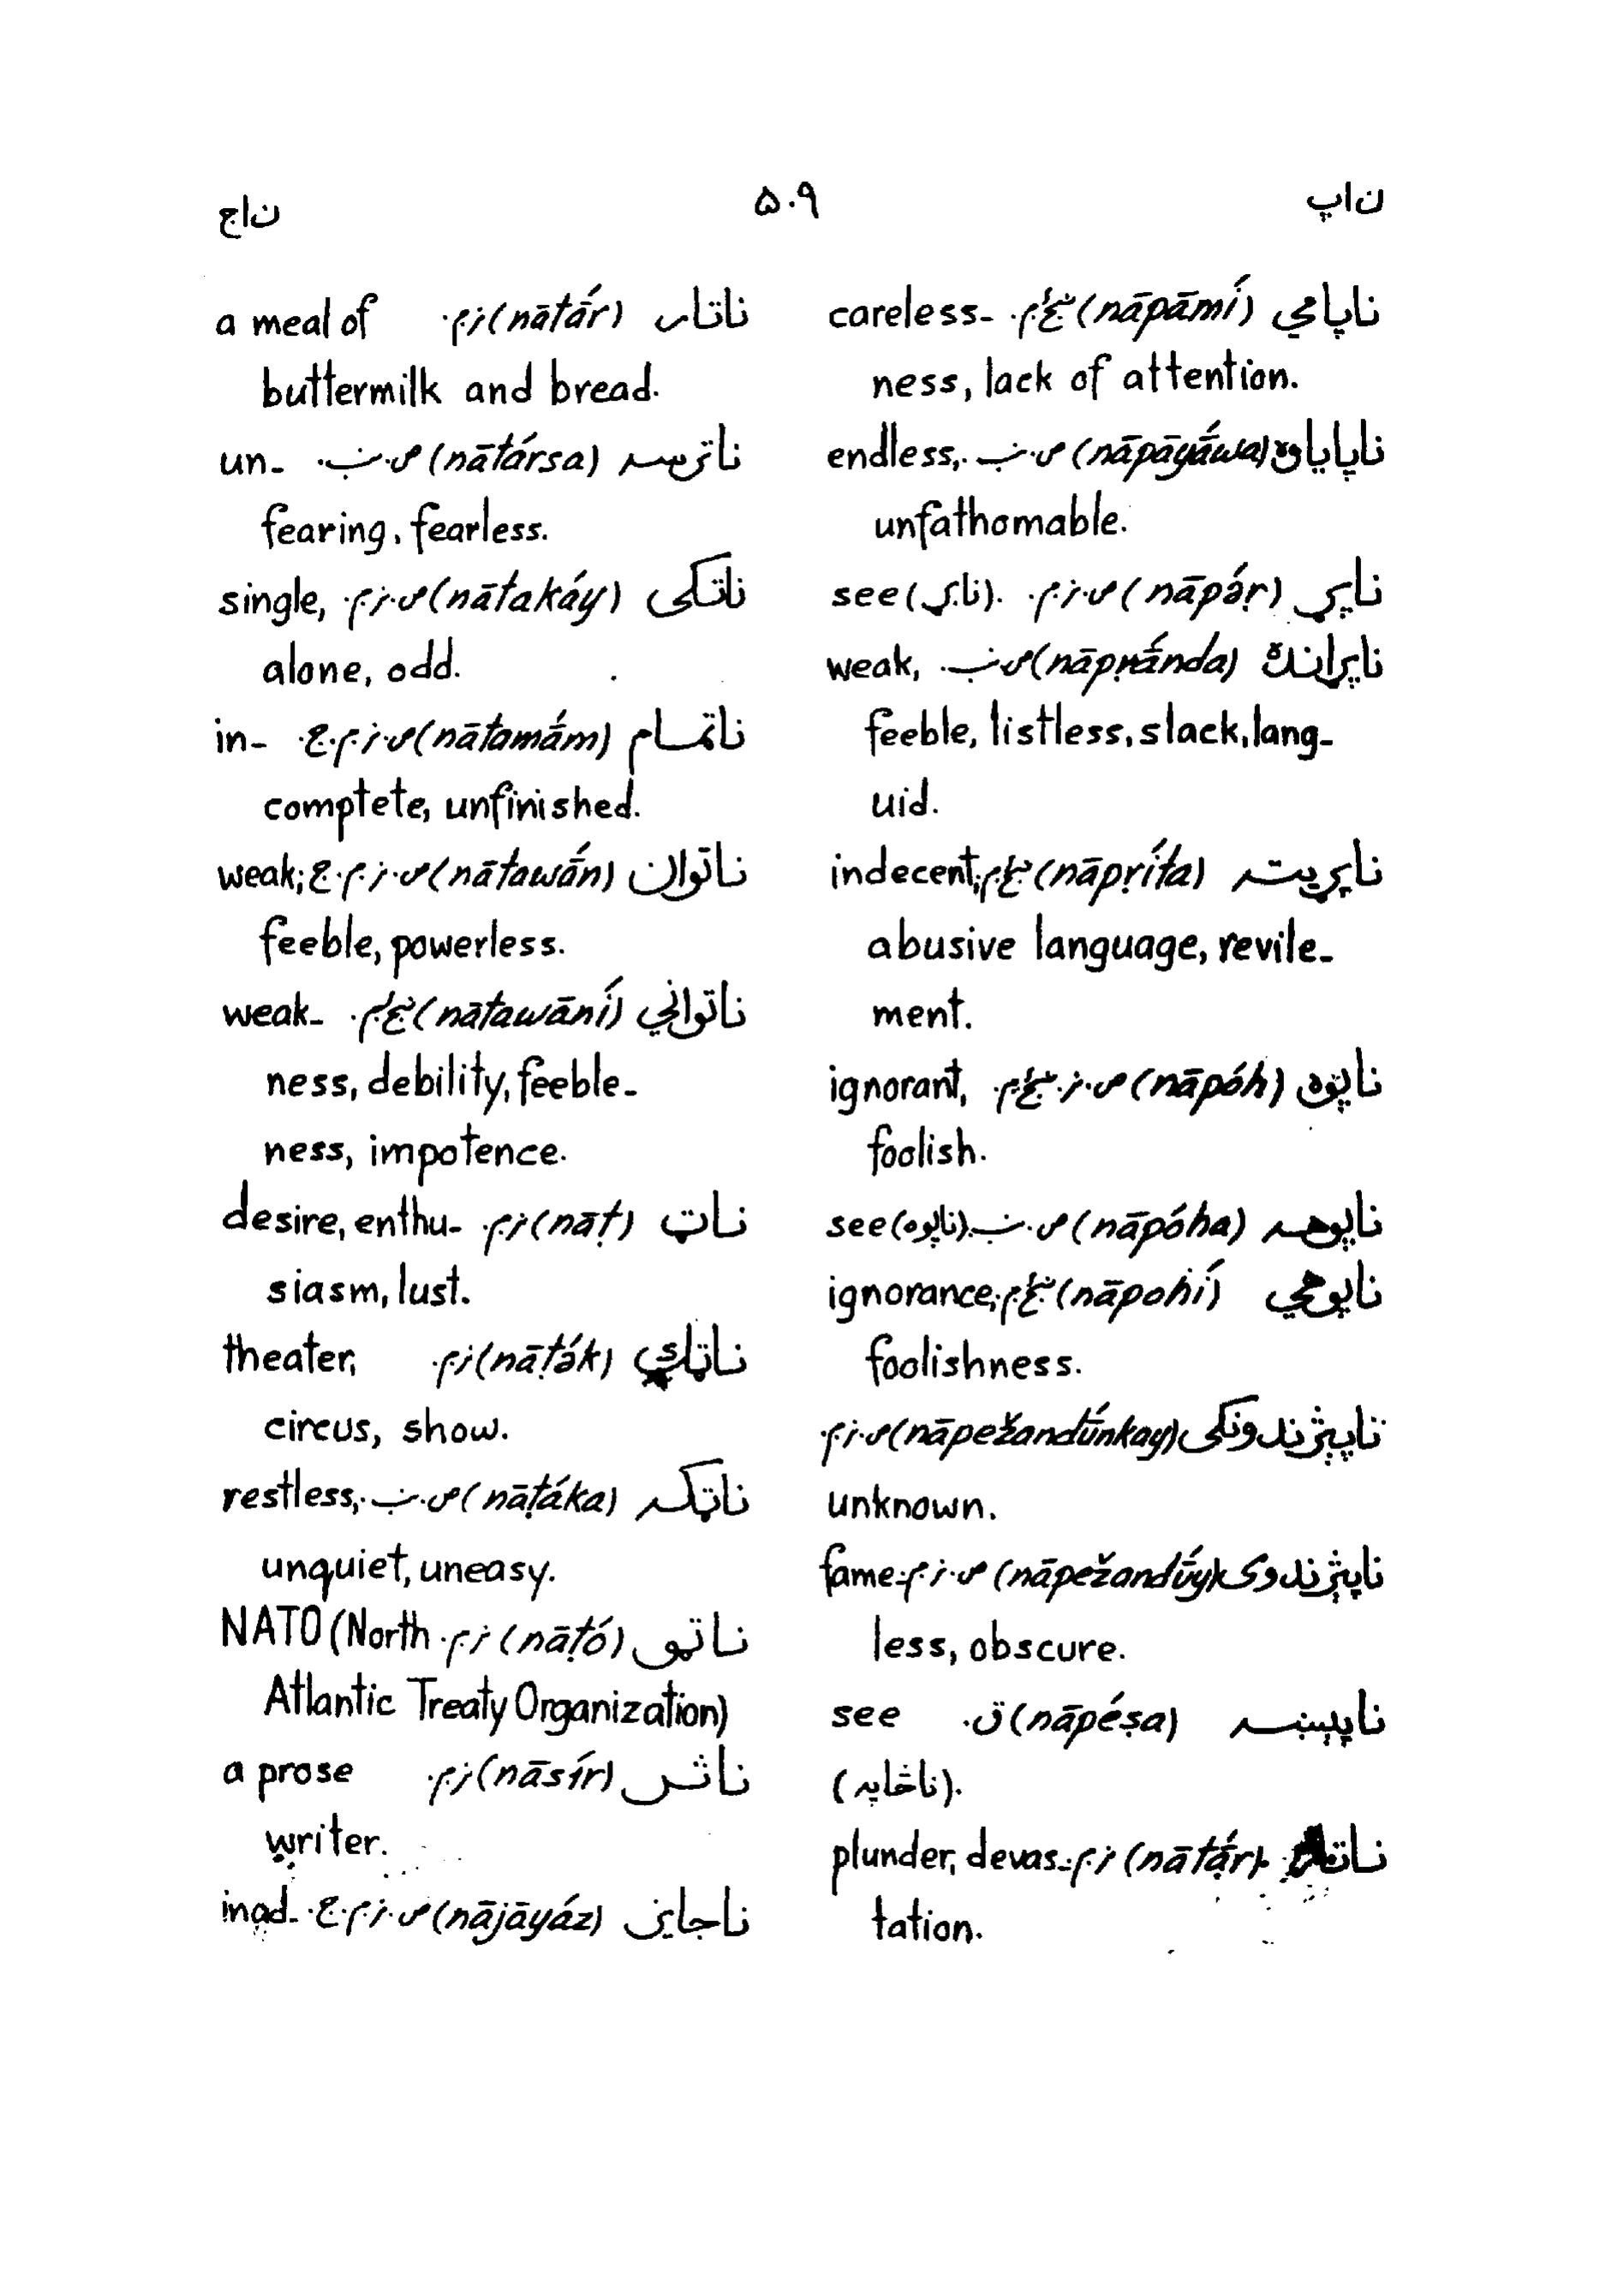 ناپ ۵۰۹ ناج
ناپامي (nāpāmí) careless-
ness, lack of attention.
ناپایاوه (nāpāyā́wa) ص. endless,
unfathomable.
ناپړ (nāpə́ṛ) ص.ز.م. see (ناړ).
ناپړانده (nāpṛā́nda) ص. weak,
feeble, listless, slack, lang-
uid.
ناپړیته (nāpṛíta) indecent,
abusive language, revile-
ment.
ناپوه (nāpóh) ص.ز. ignorant,
foolish.
ناپوهه (nāpóha) ص. see (ناپوه).
ناپوهي (nāpohí) ignorance,
foolishness.
ناپېژندونکی (nāpežandū́nkay) ص.ز.م.
unknown.
ناپېژندوی (nāpežandū́yk ص.ز.م. fame-
less, obscure.
ناپېښه (nāpéṣa) ق. see
(ناڅاپه).
(nātā́ṛ) ز.م. plunder, devas-
tation.
ناتار (nātā́r) ز.م. a meal of
buttermilk and bread.
ناترسه (nātársa) ص. un-
fearing, fearless.
ناتکی (nātakáy) ص.ز.م. single,
alone, odd.
ناتمام (nātamā́m) ص.ز.م.ج. in-
comptete, unfinished.
ناتوان (nātawā́n) ص.ز.م.ج. weak;
feeble, powerless.
ناتواني (nātawāní) weak-
ness, debility, feeble-
ness, impotence.
ناټ (nāṭ) ز.م. desire, enthu-
siasm, lust.
ناټک (nāṭák) ز.م. theater,
circus, show.
ناټکه (nāṭáka) ص. restless,
unquiet, uneasy.
ناټو (nāṭó) ز.م. NATO (North
Atlantic Treaty Organization)
ناثر (nāsír) ز.م. a prose
writer.
ناجایز (nājāyáz) ص.ز.م.ج. inad-